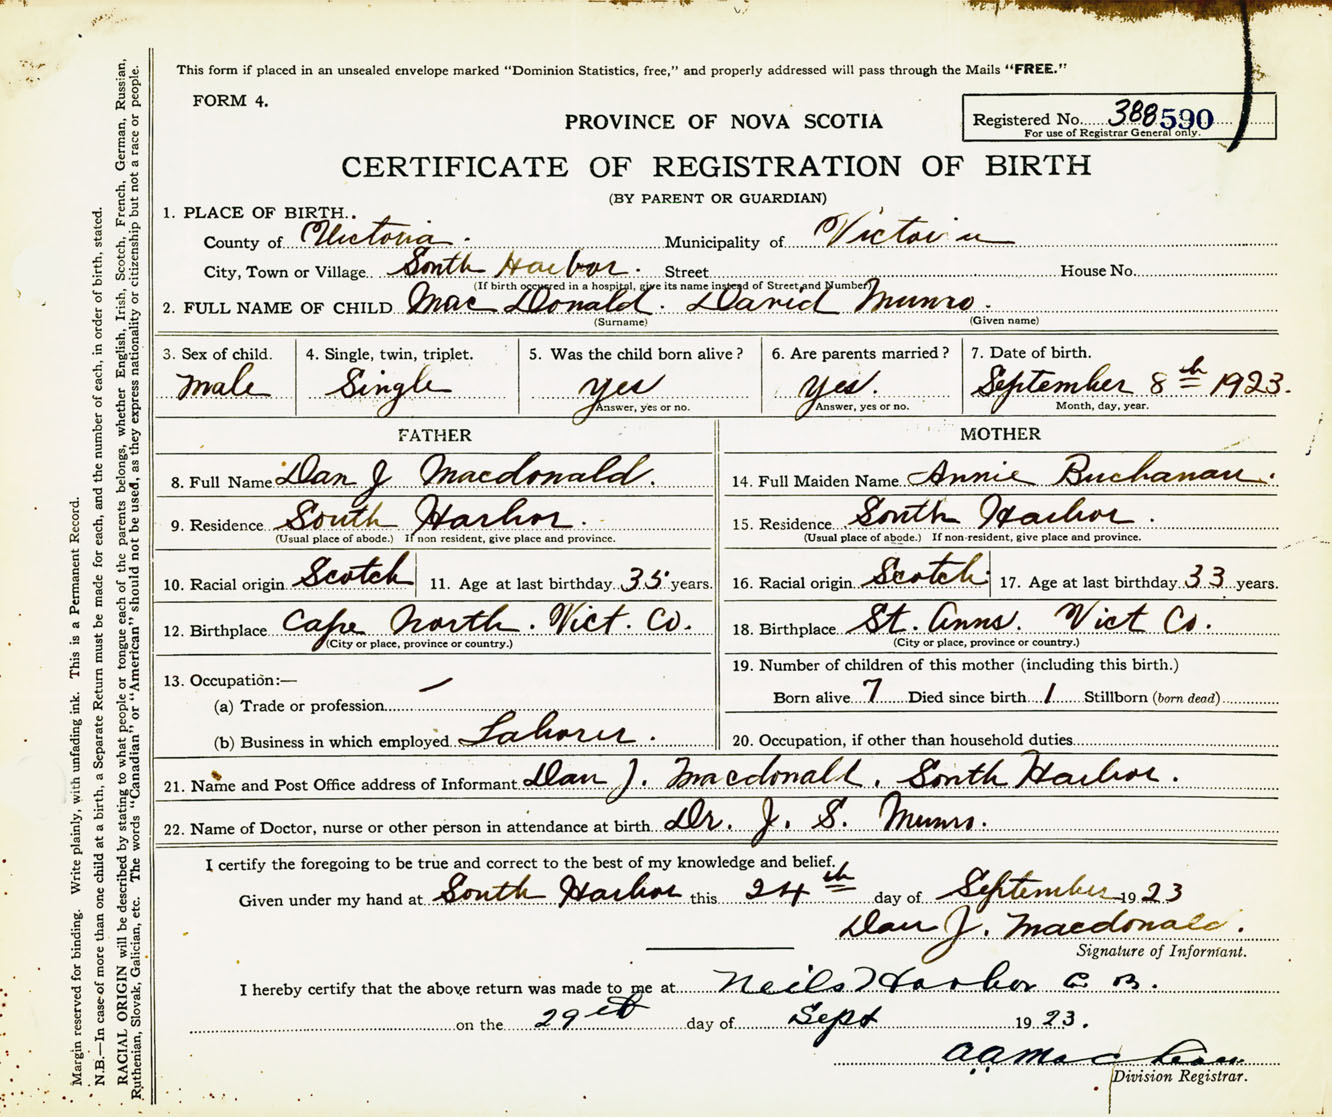 This form if placed in an unsealed envelope marked "Dominion Statistics, free," and properly addressed will pass through the Mails "FREE."
FORM 4.
Registered No. 388590
For use of Registrar General only.
PROVINCE OF NOVA SCOTIA
CERTIFICATE OF REGISTRATION OF BIRTH
(BY PARENT OR GUARDIAN)
1. PLACE OF BIRTH..
County of Victoria. Municipality of Victoria
City, Town or Village South Harbor. Street House No.
(If birth occurred in a hospital, give its name instead of Street and Number)
2. FULL NAME OF CHILD MacDonald. David Munro.
(Surname) (Given name)
3. Sex of child. 4. Single, twin, triplet. 5. Was the child born alive? 6. Are parents married? 7. Date of birth.
Male Single yes yes. September 8th 1923.
Answer, yes or no. Answer, yes or no. Month, day, year.
FATHER MOTHER
8. Full Name Dan J Macdonald. 14. Full Maiden Name Annie Buchanan.
9. Residence South Harbor. 15. Residence South Harbor.
(Usual place of abode.) If non resident, give place and province. (Usual place of abode.) If non-resident, give place and province.
10. Racial origin Scotch 11. Age at last birthday 35 years. 16. Racial origin Scotch 17. Age at last birthday 33 years.
12. Birthplace Cape North. Vict. Co. 18. Birthplace St. Anns. Vict Co.
(City or place, province or country.) (City or place, province or country.)
19. Number of children of this mother (including this birth.)
13. Occupation:— —
Born alive 7 Died since birth 1 Stillborn (born dead)
(a) Trade or profession
(b) Business in which employed Laborer. 20. Occupation, if other than household duties
21. Name and Post Office address of Informant Dan J. Macdonald. South Harbor.
22. Name of Doctor, nurse or other person in attendance at birth Dr. J. S. Munro.
I certify the foregoing to be true and correct to the best of my knowledge and belief.
Given under my hand at South Harbor this 24th day of September 1923
Dan J. Macdonald.
Signature of Informant.
I hereby certify that the above return was made to me at Neils Harbor C B.
on the 29th day of Sept 1923.
A A MacLean
Division Registrar.
Margin reserved for binding. Write plainly, with unfading ink. This is a Permanent Record.
N.B.—In case of more than one child at a birth, a Separate Return must be made for each, and the number of each, in order of birth, stated.
RACIAL ORIGIN will be described by stating to what people or tongue each of the parents belongs, whether English, Irish, Scotch, French, German, Russian,
Ruthenian, Slovak, Galician, etc. The words "Canadian" or "American" should not be used, as they express nationality or citizenship but not a race or people.